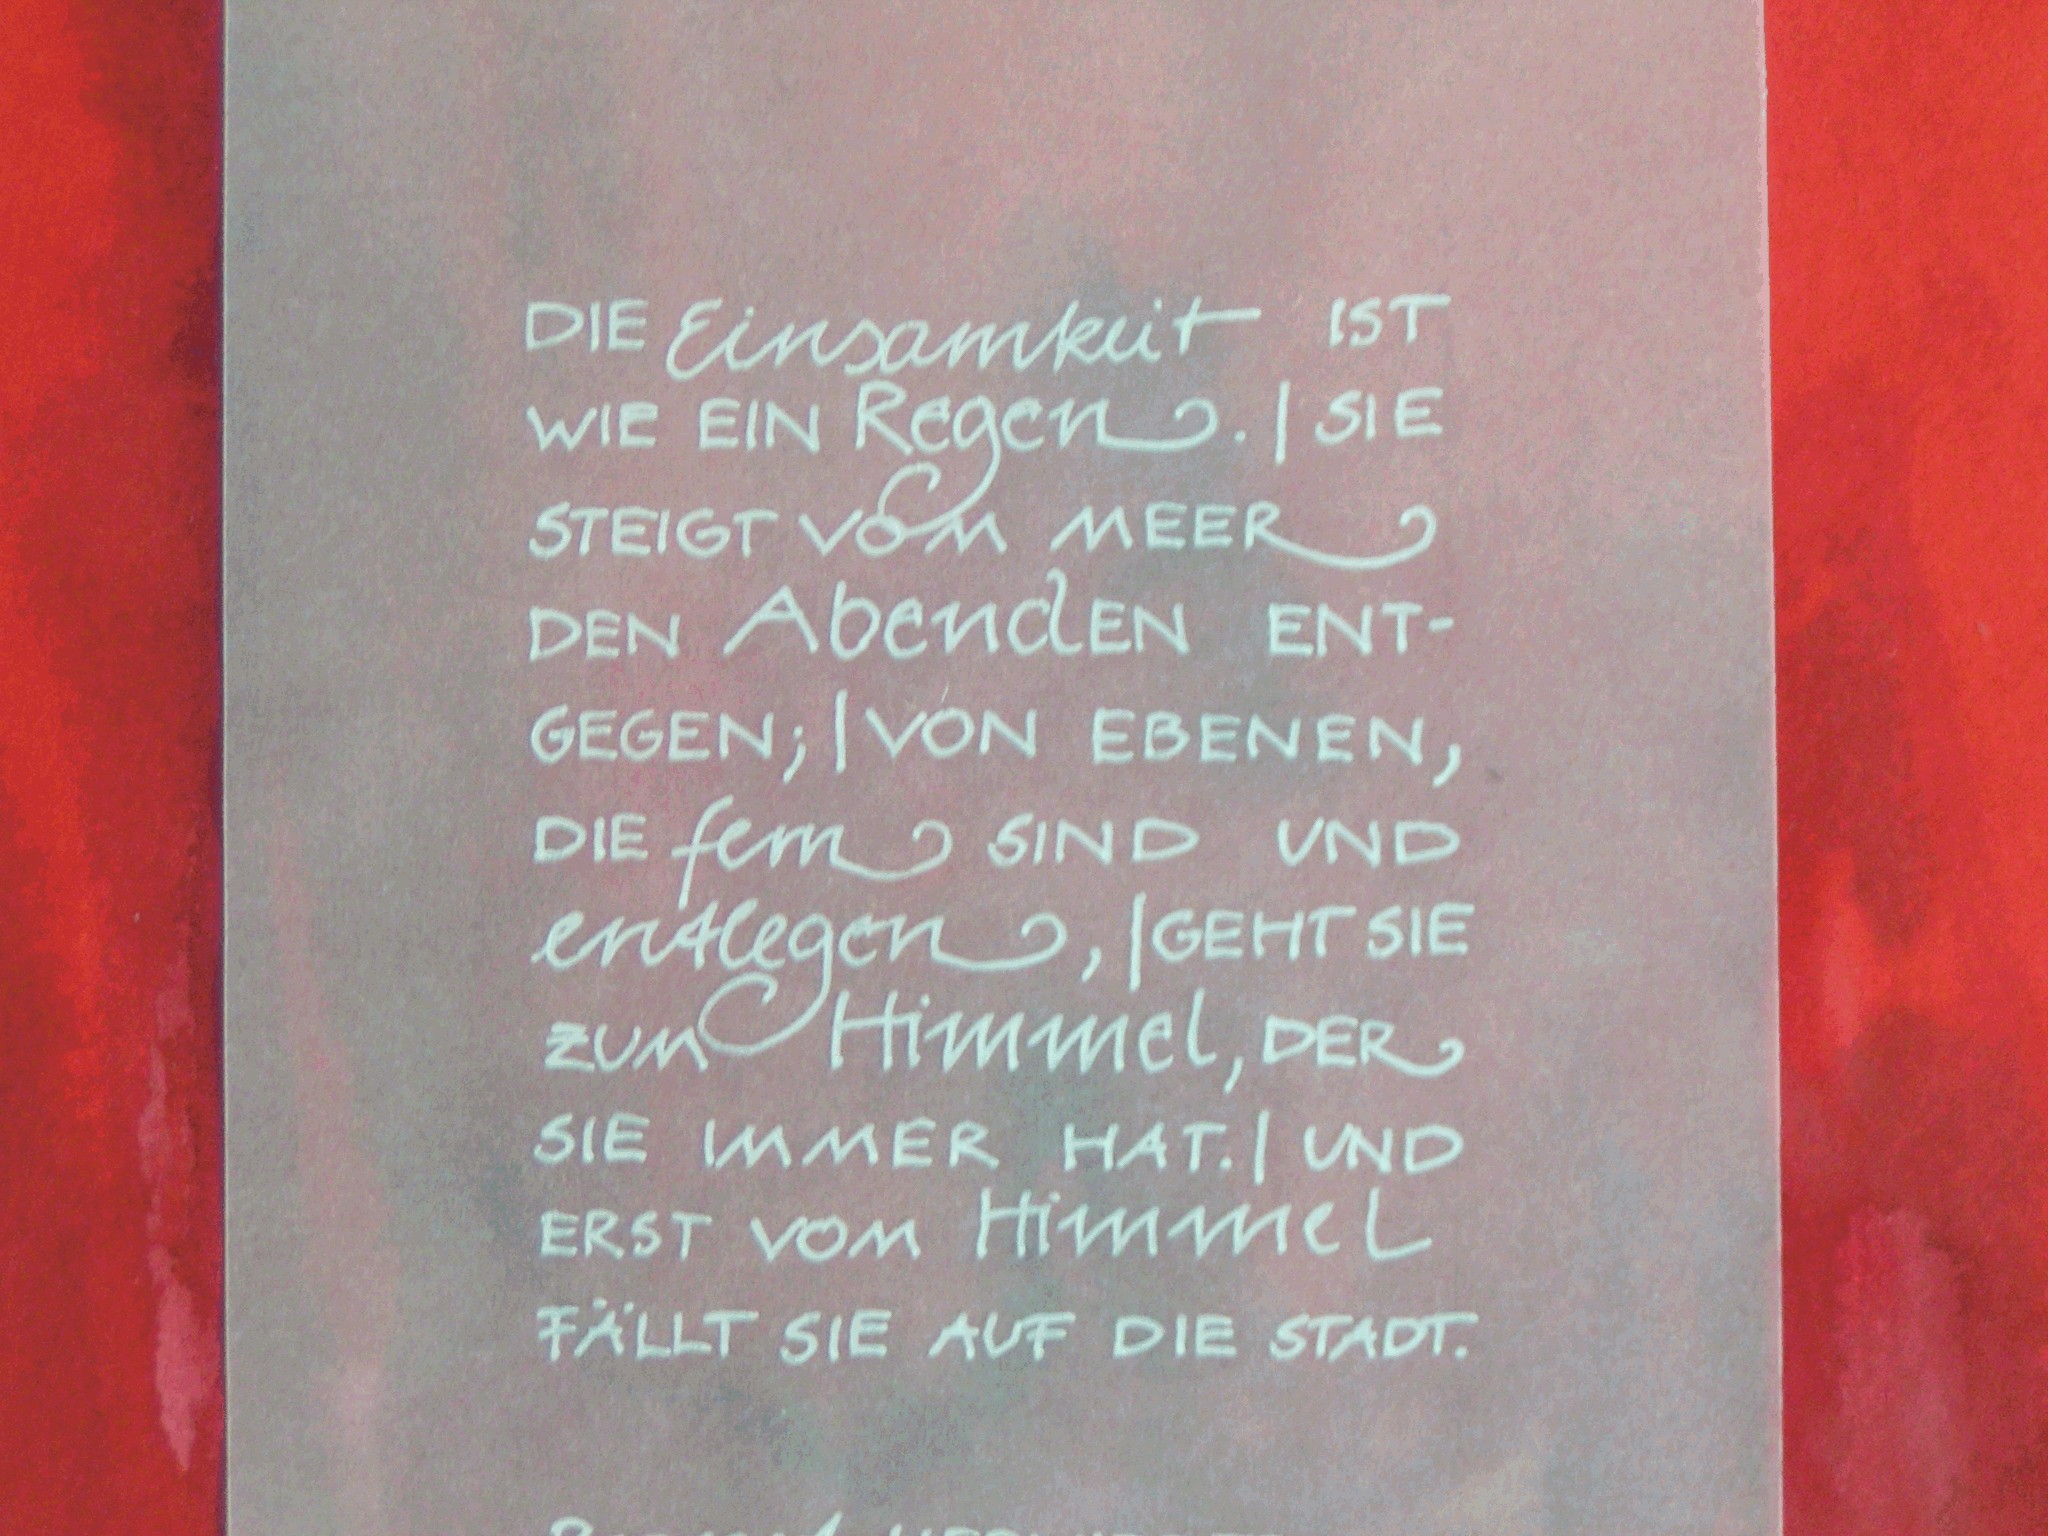 DIE Einsamkeit IST
WIE EIN Regen. | SIE
STEIGT VOM MEER
DEN AbendEN ENT-
GEGEN; | VON EBENEN,
DIE fern SIND UND
entlegen, | GEHT SIE
ZUM Himmel, DER
SIE IMMER HAT. | UND
ERST VOM HimmeL
FÄLLT SIE AUF DIE STADT.